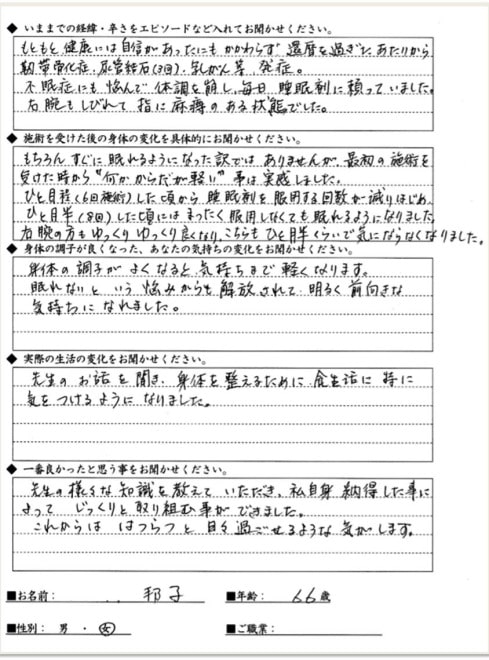 ◆ いままでの経緯・辛さをエピソードなど入れてお聞かせください。
もともと健康には自信があったにもかかわらず 還暦を過ぎた あたりから
靭帯骨化症、尿管結石(3回)、乳がん等 発症。
不眠症にも悩んで 体調を崩し、毎日 睡眠剤に頼っていました。
右腕もしびれて 指に麻痺のある状態でした。
◆ 施術を受けた後の身体の変化を具体的にお聞かせください。
もちろん すぐに眠れるようになった訳では ありませんが、最初の施術を
受けた時から "何か からだが軽い" 事は実感しました。
ひと月程(6回施術)した頃から 睡眠剤を服用する回数が減りはじめ、
ひと月半(8回)した頃には まったく服用しなくても眠れるようになりました
右腕の方も ゆっくり ゆっくり 良くなり、こちらも ひと月半くらいで気にならなくなりました。
◆ 身体の調子が良くなった、あなたの気持ちの変化をお聞かせください。
身体の調子が よくなると 気持ちまで 軽くなります。
眠れないという 悩みからも 解放されて、明るく 前向きな
気持ちに なれました。
◆ 実際の生活の変化をお聞かせください。
先生の お話を聞き、身体を整えるために、食生活に 特に
気をつけるように なりました。
◆ 一番良かったと思う事をお聞かせください。
先生の様々な 知識を教えて いただき、私自身 納得した事に
よって じっくりと取り組む事が できました。
これからは はつらつと 日々 過ごせるような 気がします。
■お名前： 邦子 ■年齢： 66歳
■性別： 男 ・ 女 ■ご職業：